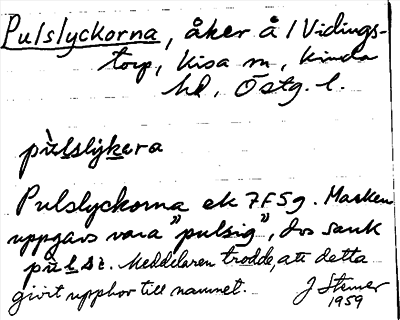 Pulslyckorna, åker å 1 Vidings-
torp, Kisa sn, Kinda
hd, Östg. l.
pùlslykera
Pulslyckorna ek 7F5g. Marken
uppgavs vara "pulsig", dvs sank
Meddelaren trodde, att detta
givit upphov till namnet. J Stemer
1959